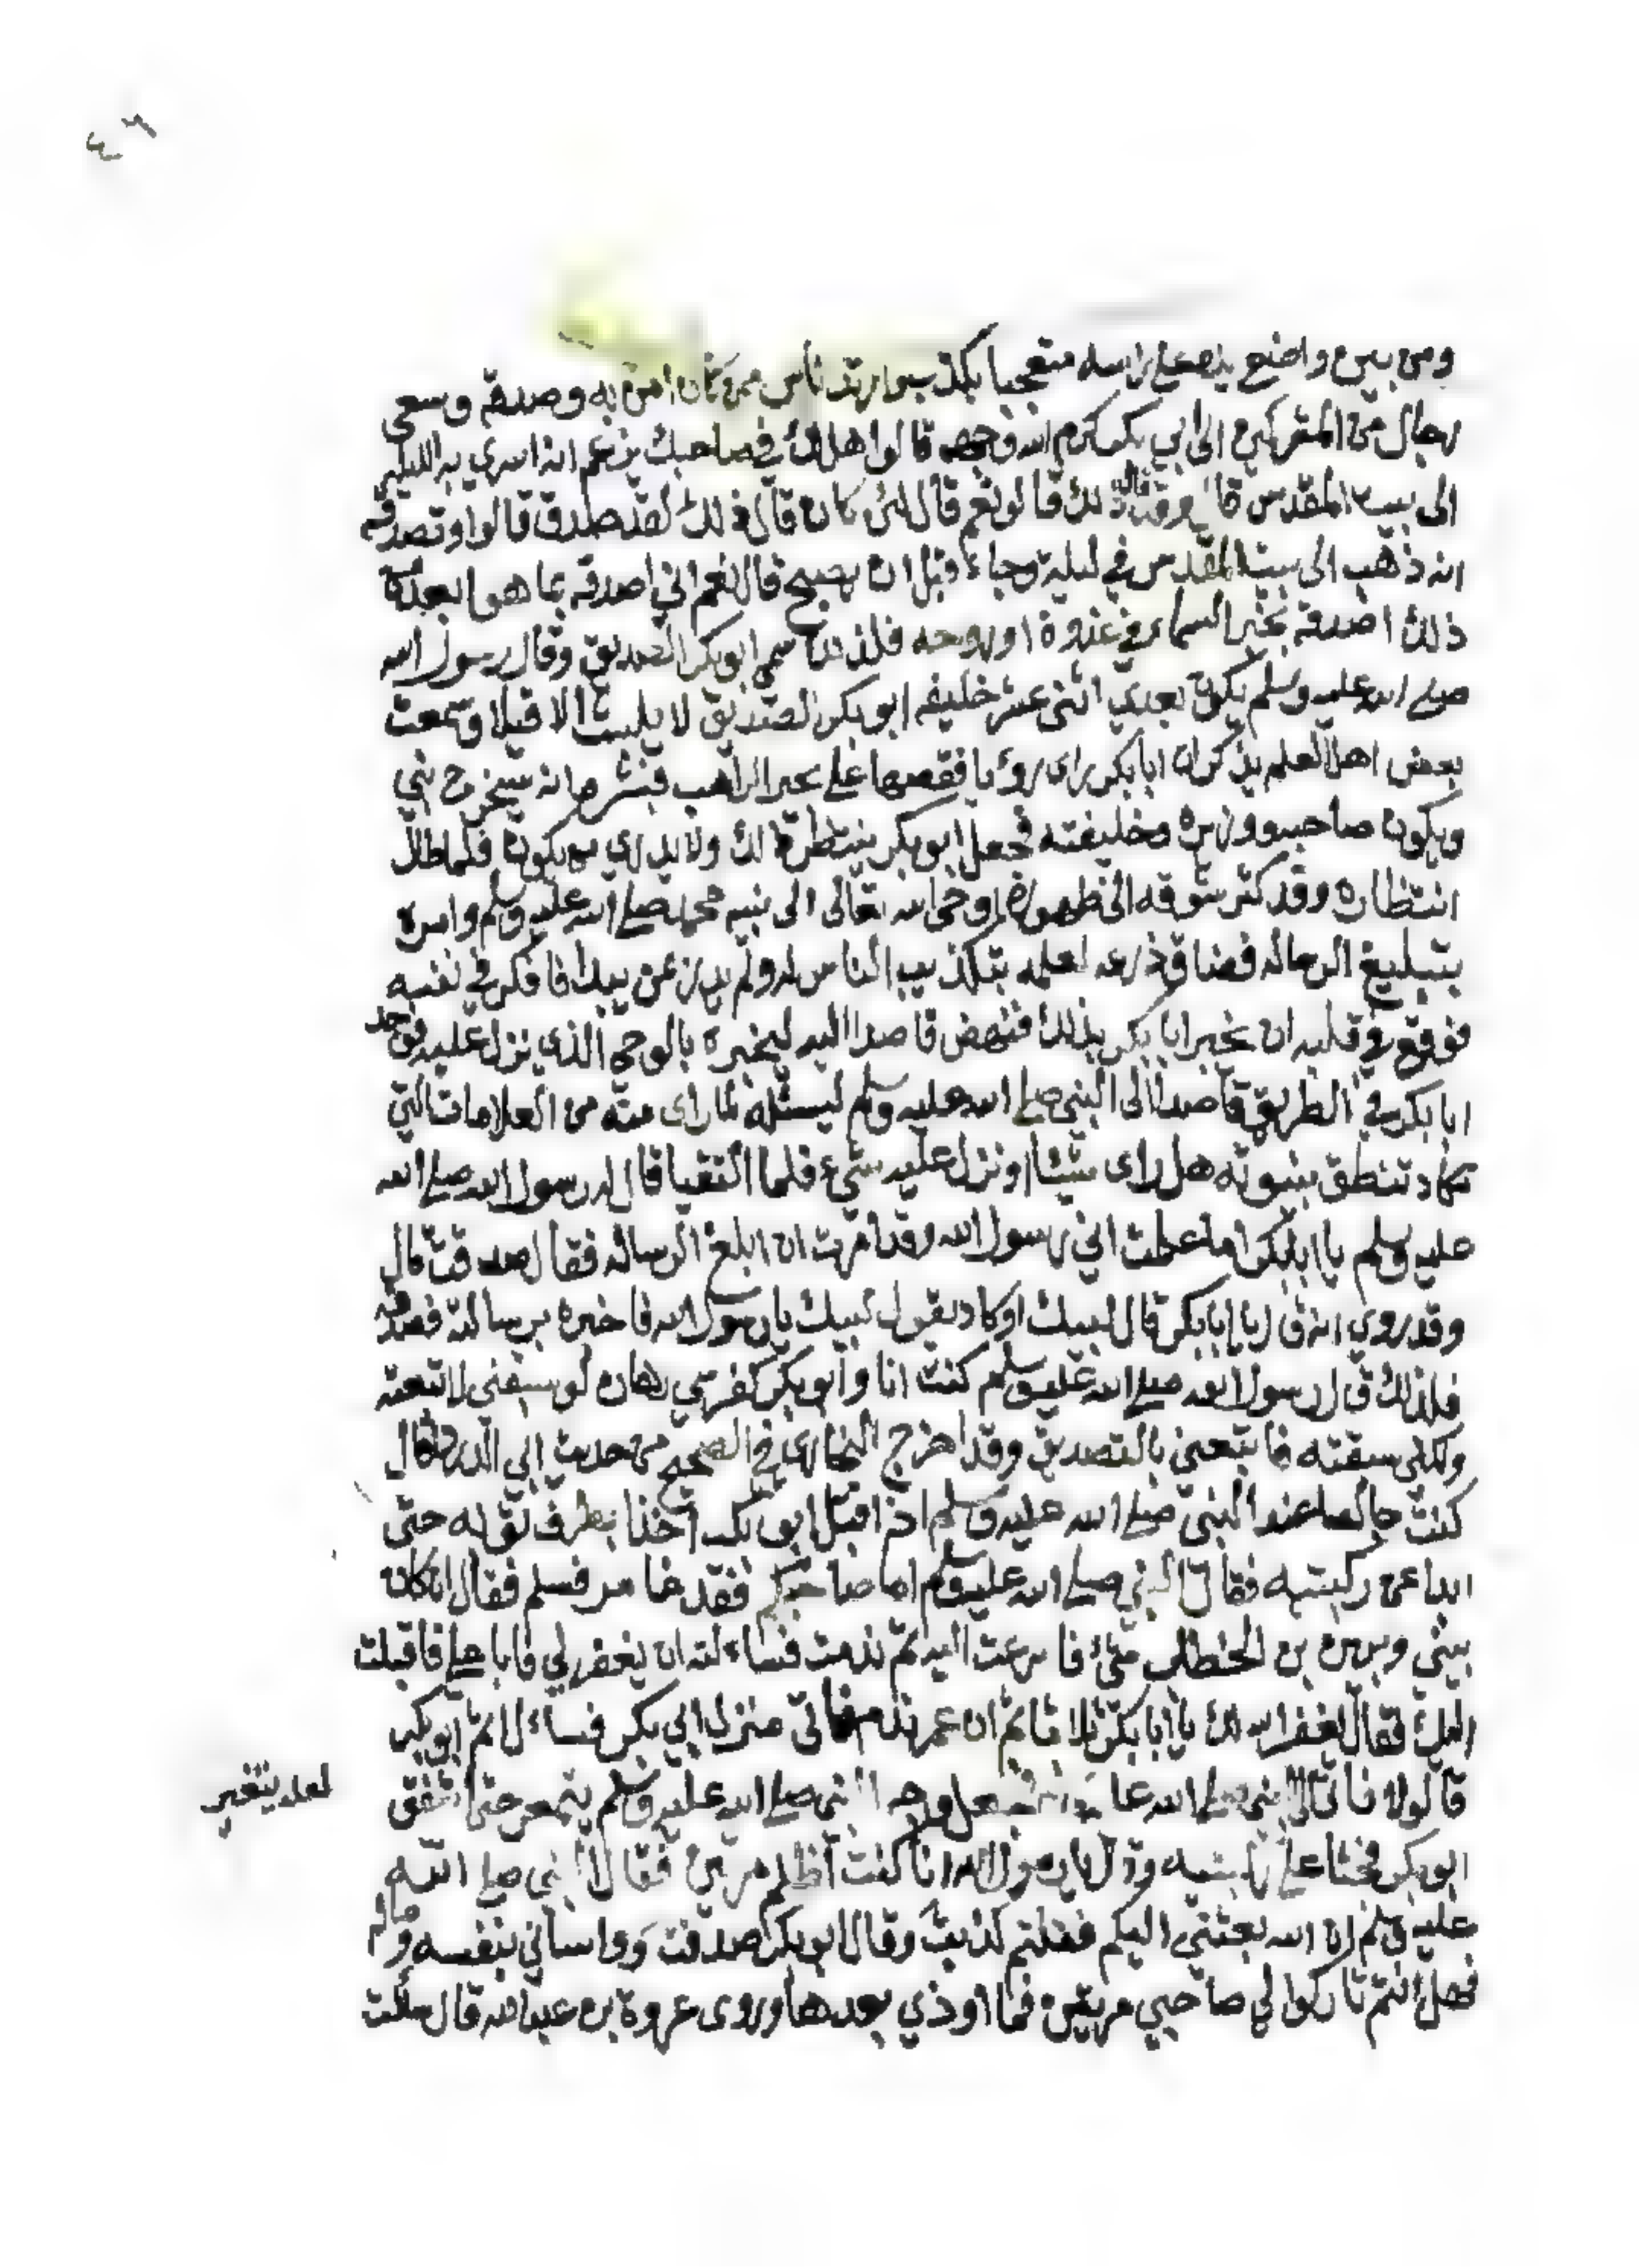 ٤٦
ومن بين واضع يده على راسه متعجبا يكذبه وارتد ناس ممن كان امن به وصدقه وسعى
رجال من المشركين الى ابي بكر كرم الله وجهه قالوا هل لك في صاحبك يزعم انه اسري به الليلة
الى بيت المقدس قال وقد قال ذلك قالو نعم قال لئن كان قال ذلك لقد صدق قالوا وتصدقه
انه ذهب الى بيت المقدس في ليلة وجاء قبل ان يصبح قال نعم اني اصدقه بما هو ابعد من
ذلك اصدقه بخبر السماء في غدوة او روحه فلذلك سمي ابو بكر الصديق وقال رسول الله
صلى الله عليه وسلم يكون بعدي اثنى عشر خليفه ابو بكر الصديق لا يلبث الا قليلا وسمعت
بعض اهل العلم يذكر ان ابا بكر راى رؤيا فقصها على بحير الراهب فبشره انه سيخرج نبي
ويكون صاحبه ووزيره وخليفته فجعل ابو بكر ينتظر ذلك ولا يدري من يكون فلما طال
انتظاره وقد كثر شوقه الى ظهوره اوحى الله تعالى الى نبيه محمد صلى الله عليه وسلم وامره
بتبليغ الرساله فضاق ذرعه لعلمه بتكذيب الناس له ولم يدر عن يبدا فافكر في نفسه
فوقع في قلبه ان يخبر ابا بكر بذلك فنهض قاصدا اليه ليخبره بالوحي الذي نزل عليه فوجد
ابا بكر في الطريق قاصدا الى النبي صلى الله عليه وسلم ليسئله لما راى منه من العلامات التي
تكاد تنطق بنبوته هل راى شيئا او نزل عليه شيء فلما التقيا قال له رسول الله صلى الله
عليه وسلم يا ابا بكر اما علمت اني رسول الله وقد امرت ان ابلغ الرساله فقال صدقت قال
وقد روي انه قال يا ابا بكر قال لبيك او كاد يقول لبيك يا رسول الله فاخبره برسالته فصدقه
فلذلك قال رسول الله صلى الله عليه وسلم كنت انا وابو بكر كفرسي رهان لو سبقني لاتبعته
ولكني سبقته فاتبعني بالتصديق وقد اخرج البخاري في الصحيح من حديث ابي الدرداء قال
كنت جالسا عند النبي صلى الله عليه وسلم اذ اقبل ابو بكر آخذا بطرف ثوبه حتى
ابدا عن ركبتيه فقال النبي صلى الله عليه وسلم اما صاحبكم فقد غامر فسلم فقال انه كان
بيني وبين بن الخطاب شيء فاسرعت اليه ثم ندمت فساءلته ان يغفر لي فابا علي فاقبلت
اليك فقال يغفر الله لك يا ابا بكر ثلاثا ثم ان عمر ندم فاتى منزل ابي بكر فساءل اثم ابو بكر
قالوا لا فاتى الى النبي صلى الله عليه وسلم فجعل وجه النبي صلى الله عليه وسلم يتمعر حتى اشفق
لعله يتغير
ابو بكر فجثا على ركبتيه وقال يا رسول الله انا كنت اظلم مرتين فقال النبي صلى الله
عليه وسلم ان الله بعثني اليكم فقلتم كذبت وقال ابو بكر صدقت وواساني بنفسه وماله
فهل انتم تاركوا لي صاحبي مرتين فما اوذي بعدها وروى عروة بن عبد الله قال سئلت